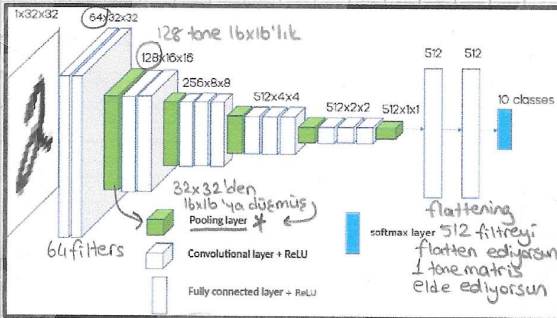 1x32x32
64x32x32
128 tane 16x16'lık
128x16x16
256x8x8
512x4x4
512x2x2
512x1x1
512
512
10 classes
32x32'den
16x16'ya düşmüş
Pooling layer *
64 filters
Convolutional layer + ReLU
Fully connected layer + ReLU
softmax layer
flattening
512 filtreyi
flatten ediyorsun
1 tane matris
elde ediyorsun